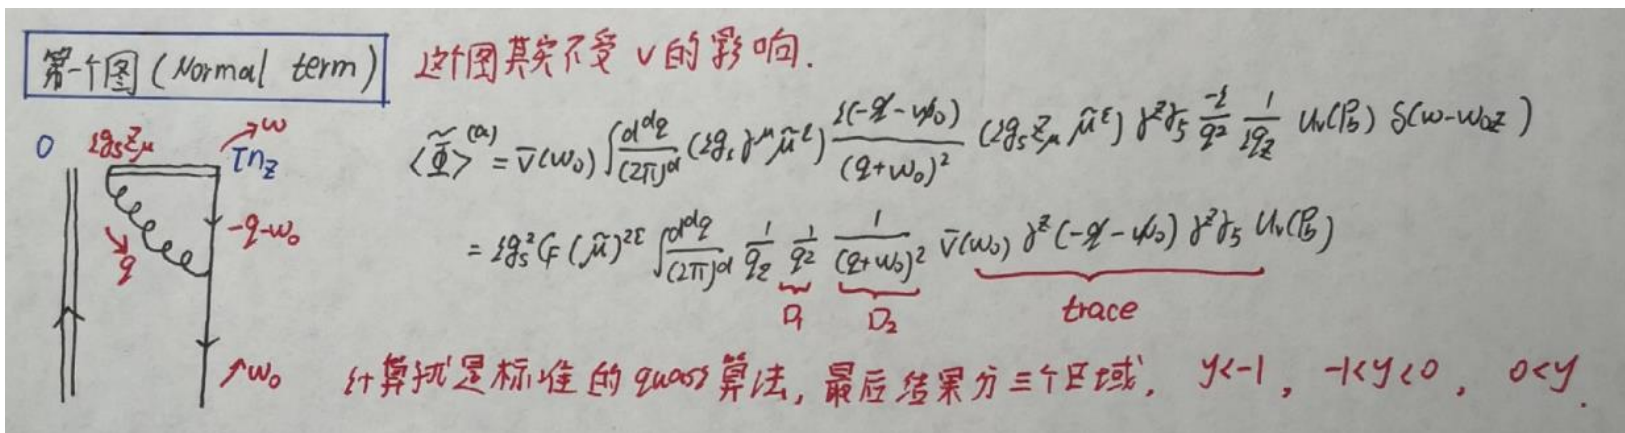 第一个图 (Normal term) 这个图其实不受 v 的影响.
0 ig_s z_μ → ω
τn_z
⟨Φ̃⟩^(a) = v̄(ω₀) ∫ d^d q/(2π)^d (ig_s γ^μ μ̃^ε) i(-q̸ - ω̸₀)/(q+ω₀)² (ig_s z_μ μ̃^ε) γ^z γ₅ -i/q² 1/iq_z u_v(P_b) δ(ω-ω₀z)
-q-ω₀
= ig_s² C_F (μ̃)^{2ε} ∫ d^d q/(2π)^d 1/q_z 1/q² 1/(q+ω₀)² v̄(ω₀) γ^z (-q̸ - ω̸₀) γ^z γ₅ u_v(P_b)
q
D₁ D₂ trace
↗ω₀ 计算就是标准的 quasi 算法, 最后结果分三个区域, y<-1, -1<y<0, 0<y.